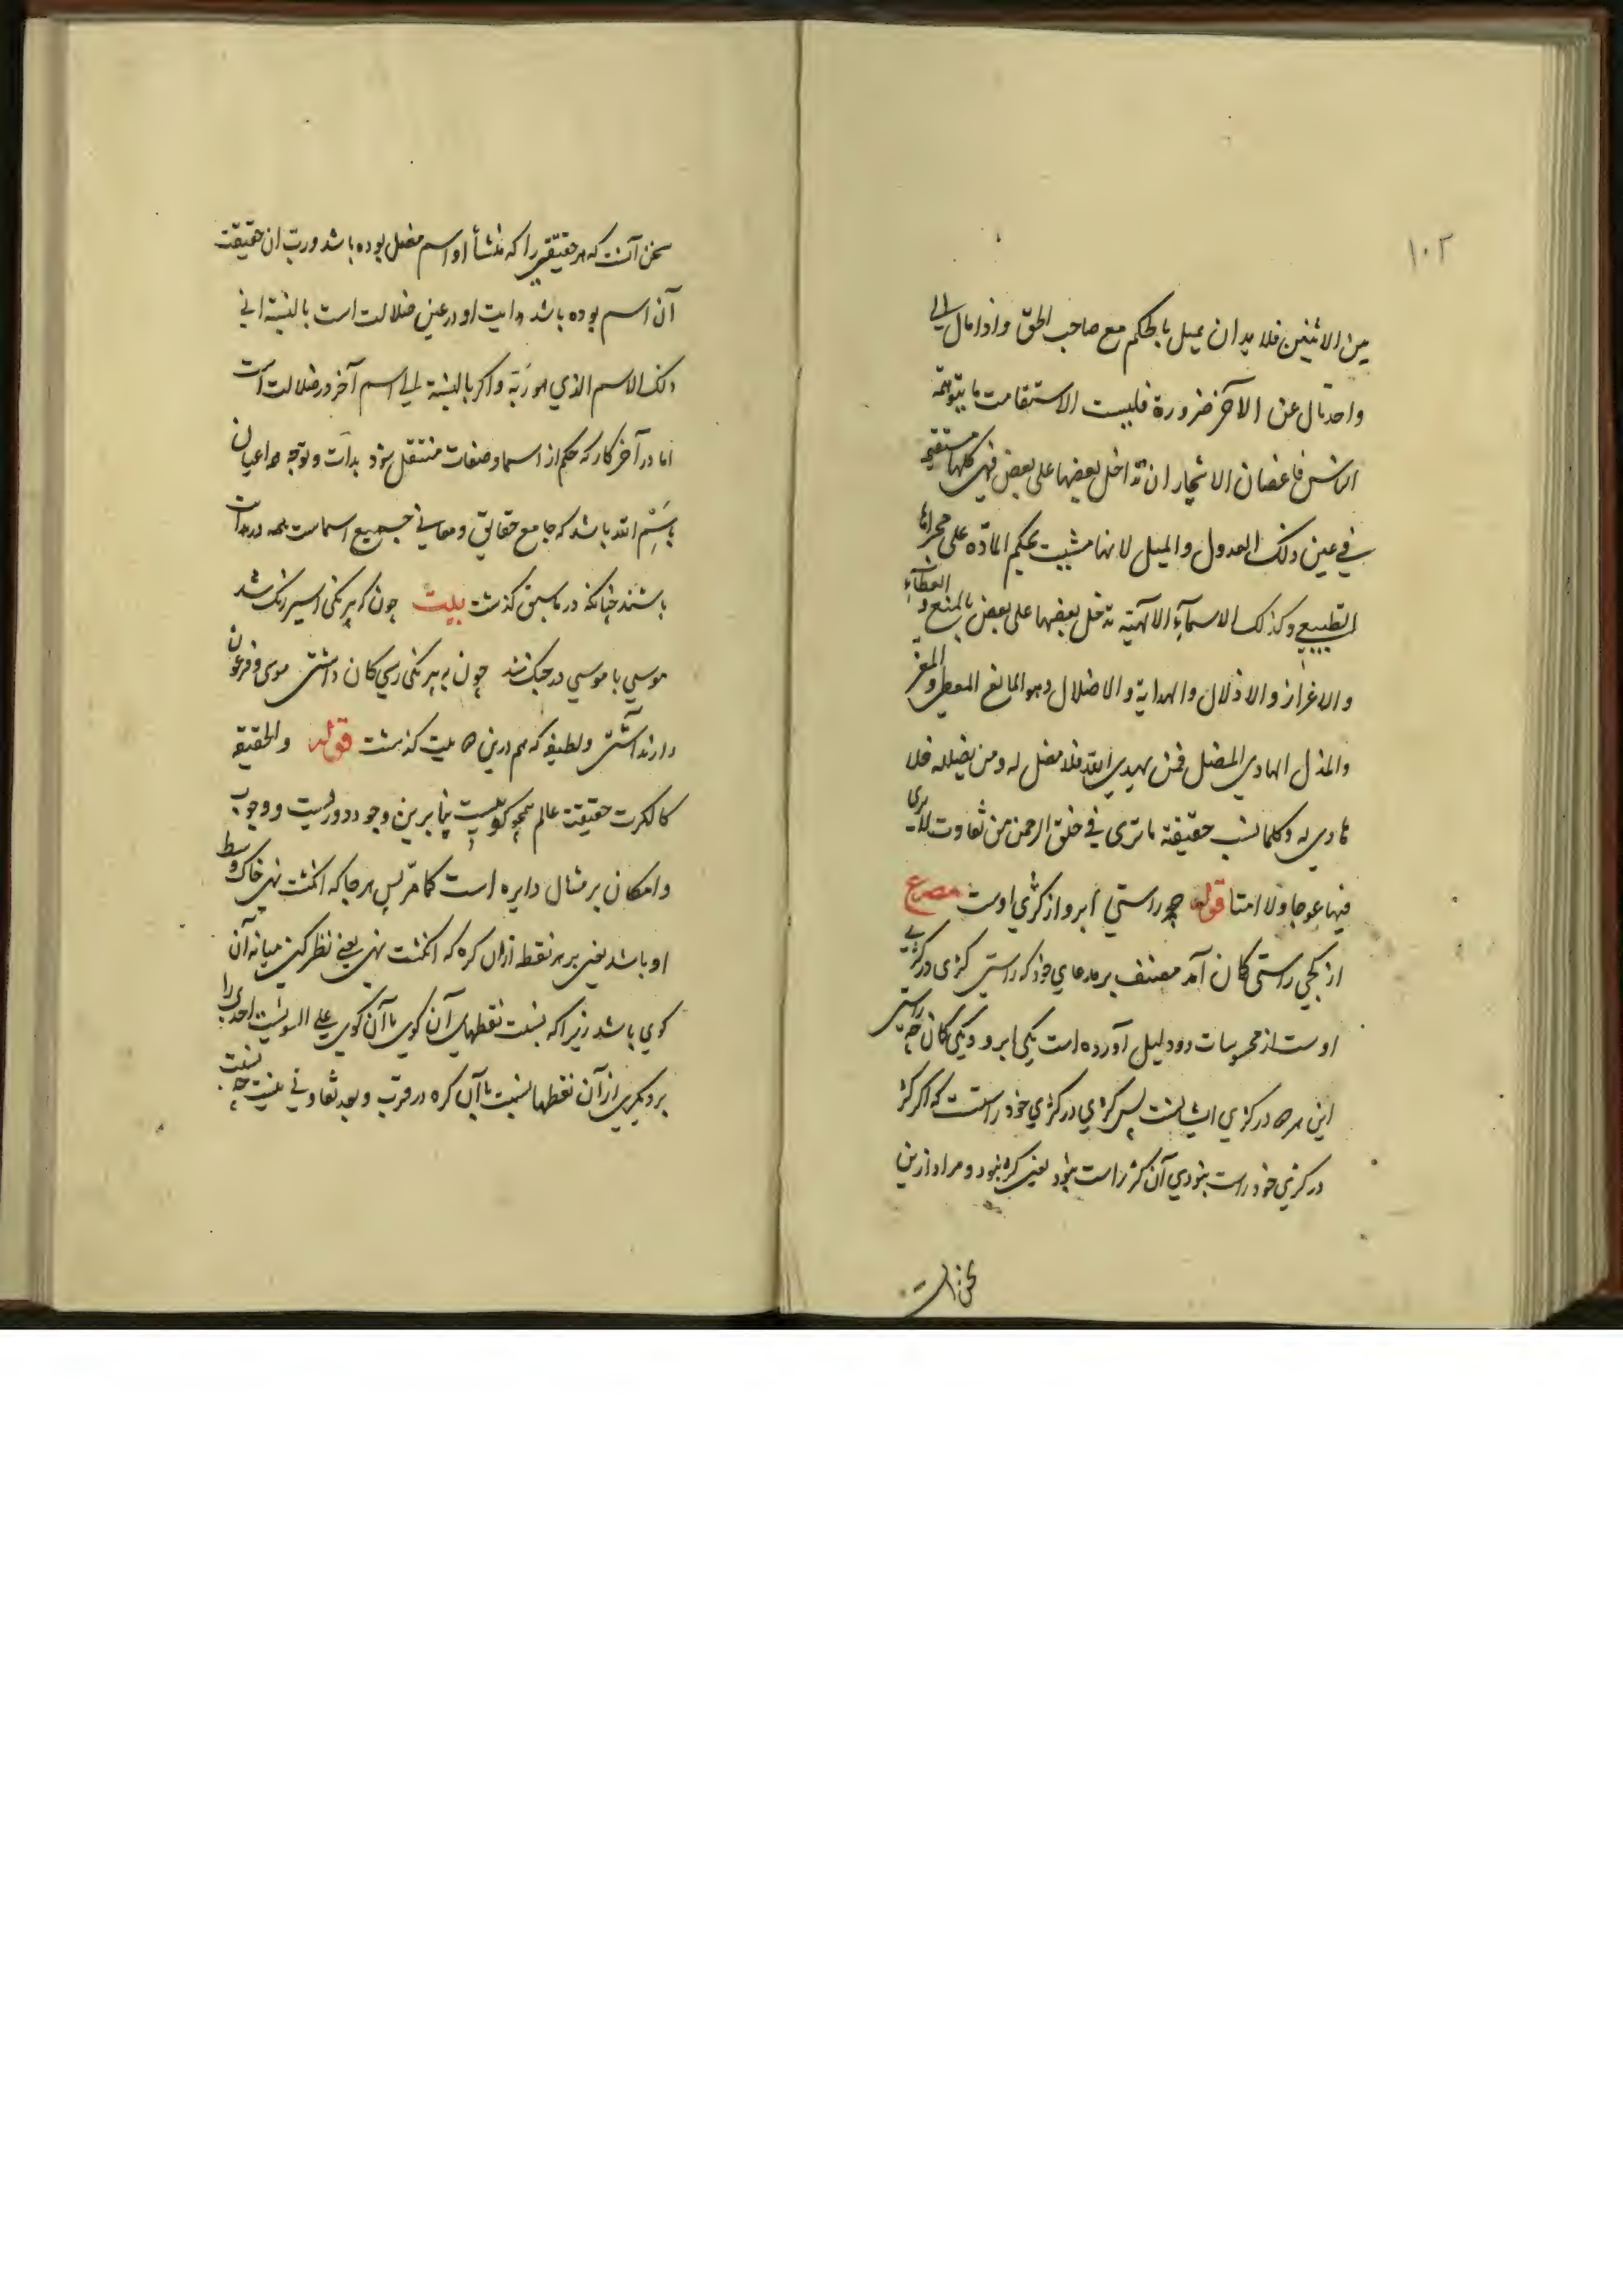 ۱۰۲
بین الاثنین فلا بد ان یمیل بالحکم مع صاحب الحقّ واذا مال الی
واحد مال عن الآخر ضرورة فلیست الاستقامت ما یتوهمه
الناس فاغصان الاشجار ان تداخل بعضها علی بعض فهی کلها مستقیمة
فی عین ذلک العدول والمیل لانها مشیت بحکم المادّه علی مجراها
الطبیعی وکذلک الاسمآء الآلهیّه تدخل بعضها علی بعض بالمنع والعطآء
والاعزاز والاذلال والهدایة والاضلال وهو المانع المعطی والمعز
والمذل الهادی المضل فمن یهدی الله فلا مضل له ومن یضلله فلا
هادی له وکلها نسب حقیقة ما تری فی خلق الرحمن من تفاوت لا تری
فیها عوجا ولا امتا قوله چو راستی ابرو از کژی اوست مصرع
از کجی راستی کمان آمد مصنف بر مدعای خود که راستی کژی در کژیی
اوست از محسوسات دو دلیل آورده است یکی ابرو و یکی کمان چه راستی
این هر ه در کژی ایشانست پس کژی در کژی خود راستست که اگر کژ
در کژی خود راست بنودی آن کژ راست بنود یعنی کژ بنود و مراد ازین
سخن آنست
سخن آنست که هر حقیقتی را که منشأ او اسم مضل بوده باشد و ربّ ان حقیقت
آن اسم بوده باشد هدایت او در عین ضلالت است بالنسبة الی
ذلک الاسم الذی هو ربّه واکر بالنسبة الی اسم آخر در ضلالت است
اما در آخر کار که حکم از اسما و صفات منتقل شود بذات و توجه همه اعیان
باسْم الله باشد که جامع حقایق و معانی جمیع اسماست همه در هدایت
باشند چنانکه در ماسبق گذشت بیت چون که بیرنکی اسیر رنک شد
موسیی با موسیی در جنک شد چون به بیرنکی رسی کان داشتی موسی و فرعون
دارند آشتی ولطیفه که هم درین ه بیت گذشت قوله والحقیقة
کالکرة حقیقت عالم همچو کوییست بنابرین وجود دوریست و وجوب
وامکان بر مثال دایره است کما مرّ پس هر جا که انکشت نهی خاک وسط
او باشد یعنی بر هر نقطه ازان کره که انکشت نهی یعنی نظر کنی میانه آن
کوی باشد زیرا که نسبت نقطهای آن کوی با آن کوی علی السویّست احدی را
بر دیکری از آن نقطها نسبت با آن کره در قرب و بعد تفاوتی نیست چه نسبت